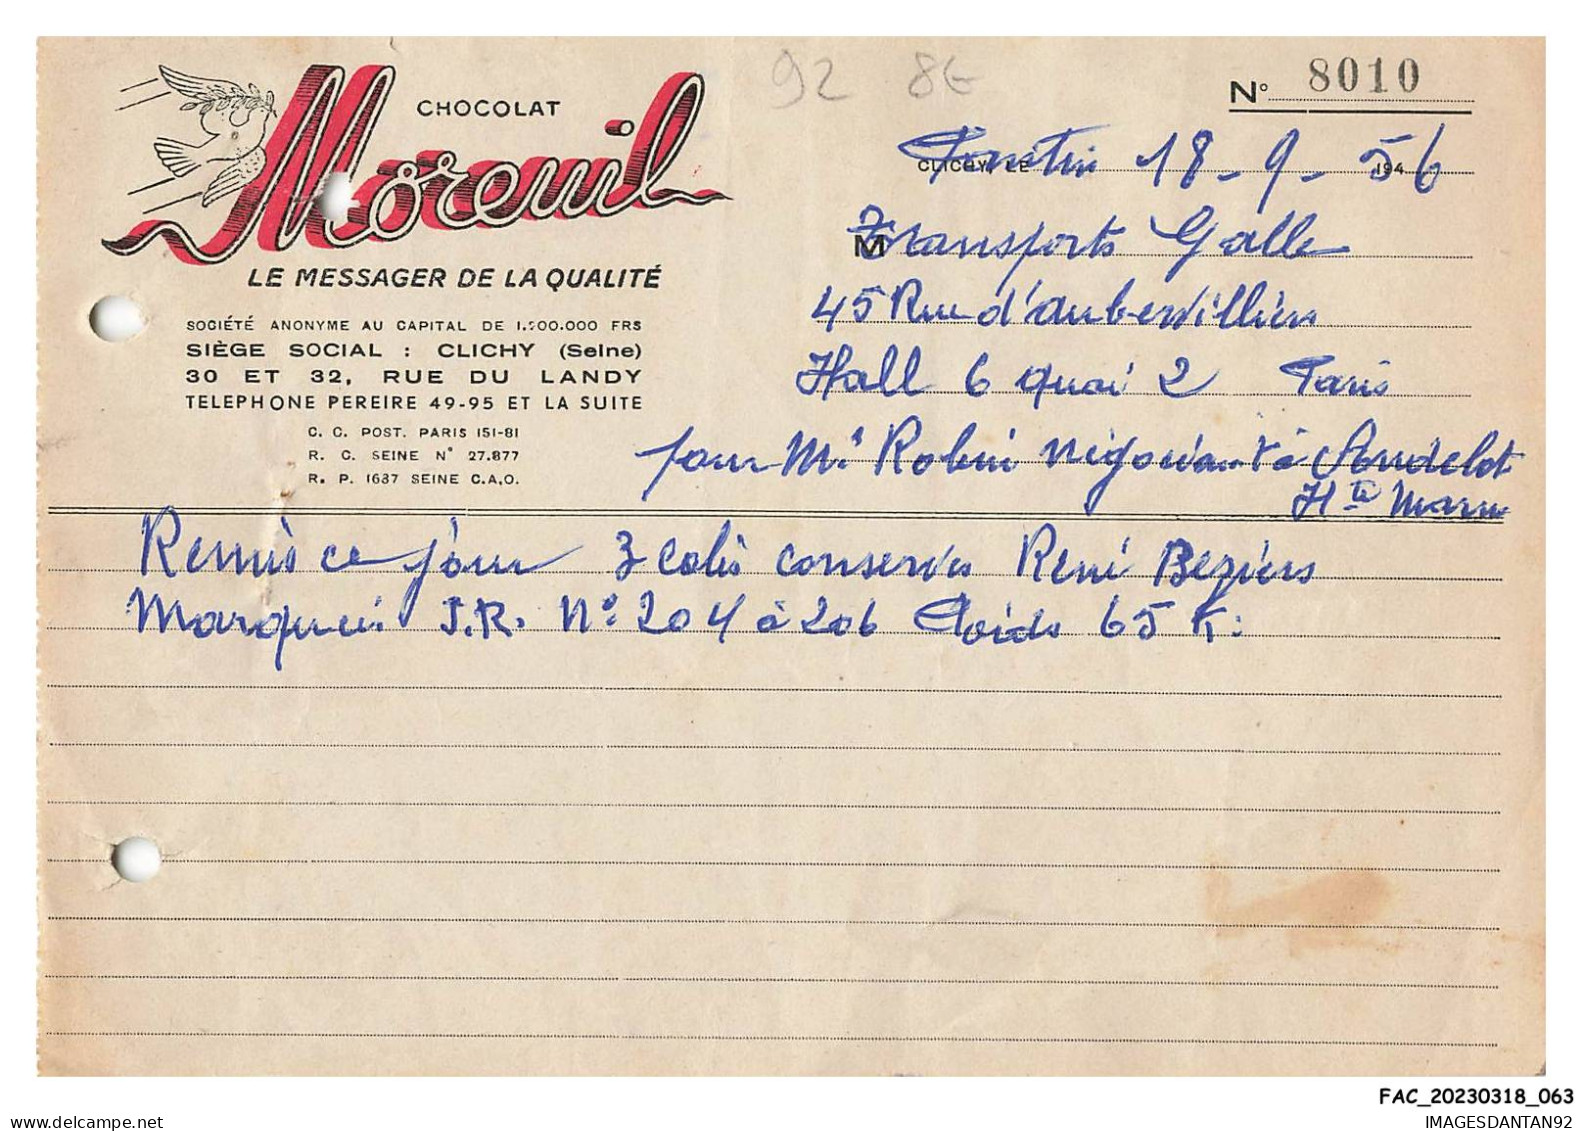 92 8€
CHOCOLAT
Moreuil
LE MESSAGER DE LA QUALITÉ
SOCIÉTÉ ANONYME AU CAPITAL DE 1.200.000 FRS
SIÈGE SOCIAL : CLICHY (Seine)
30 ET 32, RUE DU LANDY
TELEPHONE PEREIRE 49-95 ET LA SUITE
C. C. POST. PARIS 151-81
R. C. SEINE N° 27.877
R. P. 1687 SEINE C.A.O.
N° 8010
CLICHY, LE Pantin 18-9-56 194
M Transports Galle
45 Rue d'aubervilliers
Hall 6 quai 2 Paris
pour Mr Robin négociant à Andelot
Hte Marne
Remis ce jour 3 colis conserves René Beziers
Marques J.R. N° 204 à 206 Poids 65 K.
FAC_20230318_063
IMAGESDANTAN92
delcampe.net